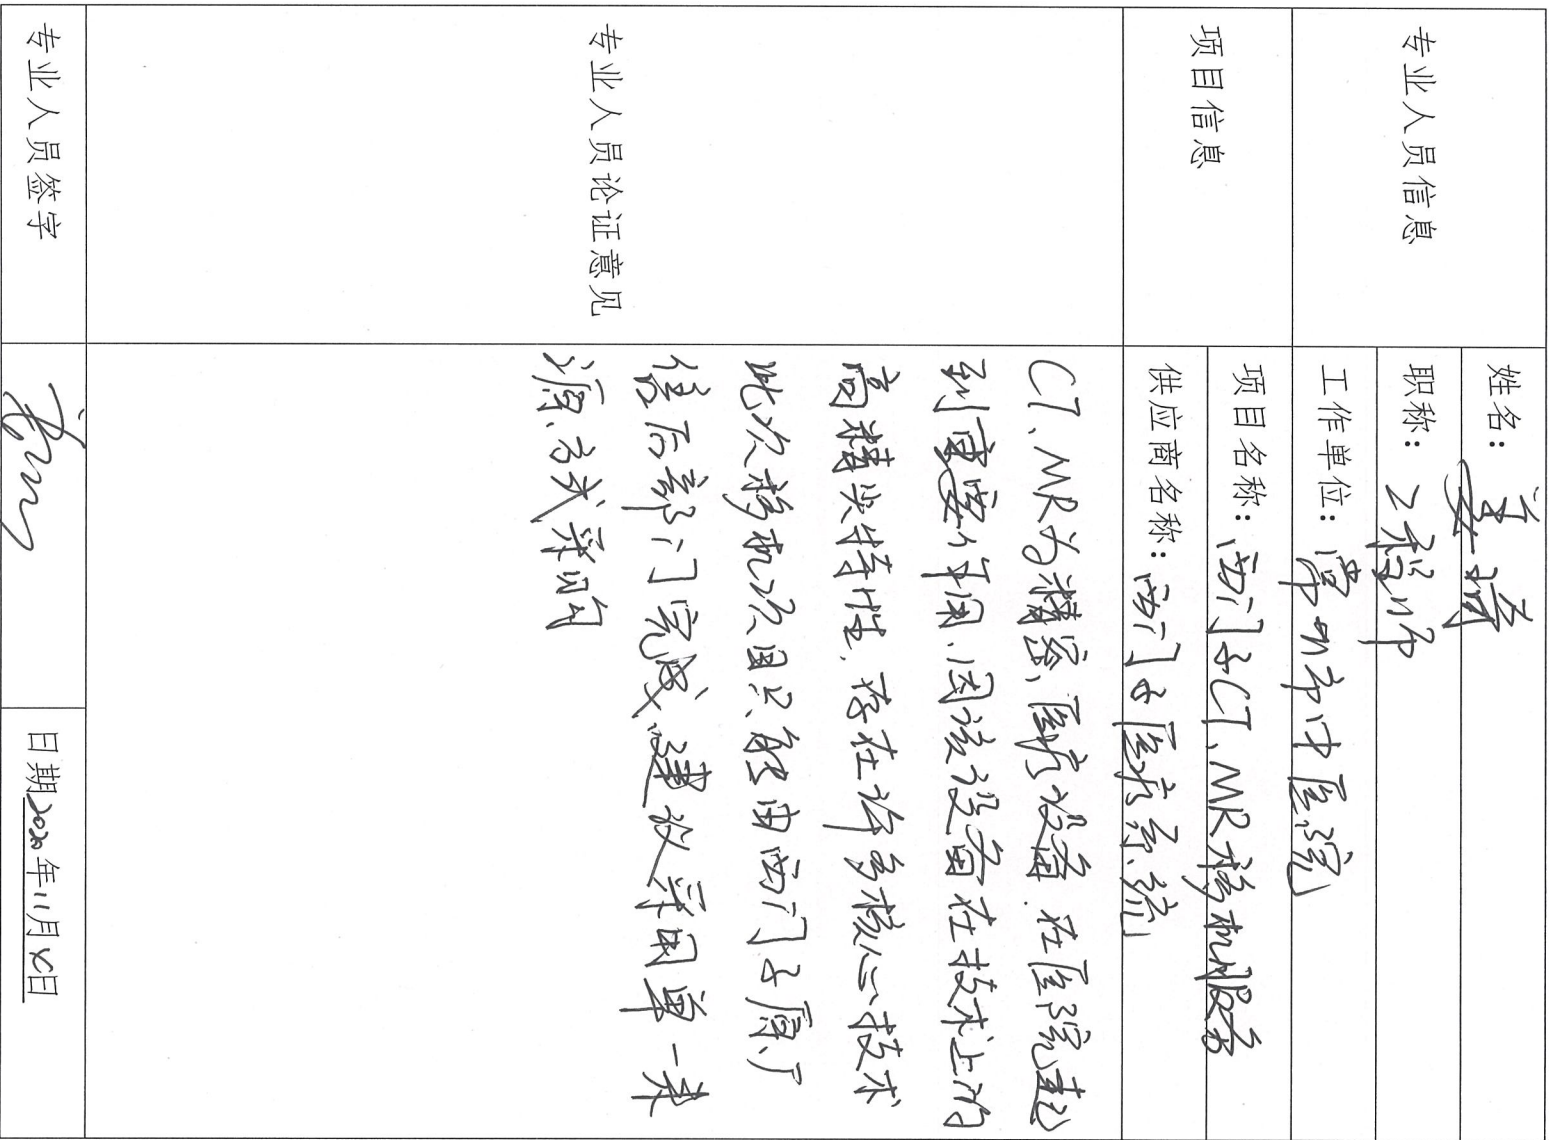 专业人员信息
姓名：
职称：工程师
工作单位：常州市中医院
项目信息
项目名称：西门子CT、MR移机服务
供应商名称：西门子医疗系统
专业人员论证意见
CT、MR为精密医疗设备.在医院起
到重要作用.因该设备在技术上的
高精尖特性.存在许多核心技术
此次移机项目只能由西门子原厂
售后部门完成 建议采用单一来
源方式采购
专业人员签字
日期2020年11月 日